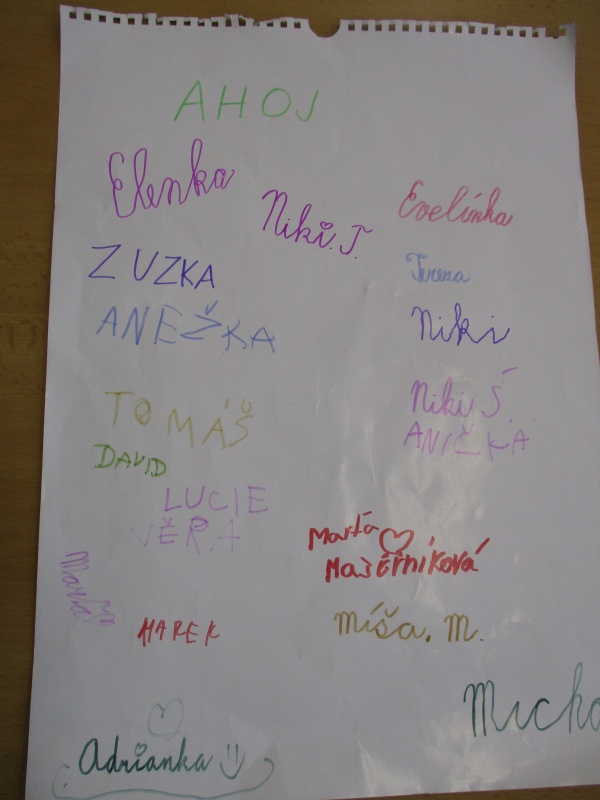 AHOJ
Elenka
Niki. T.
Evelínka
ZUZKA
Tereza
ANEŽKA
Niki
TOMÁŠ
Niki Š.
ANIČKA
DAVID
LUCIE
VĚRA
Marta
MAREK
Míša. M.
Adrianka